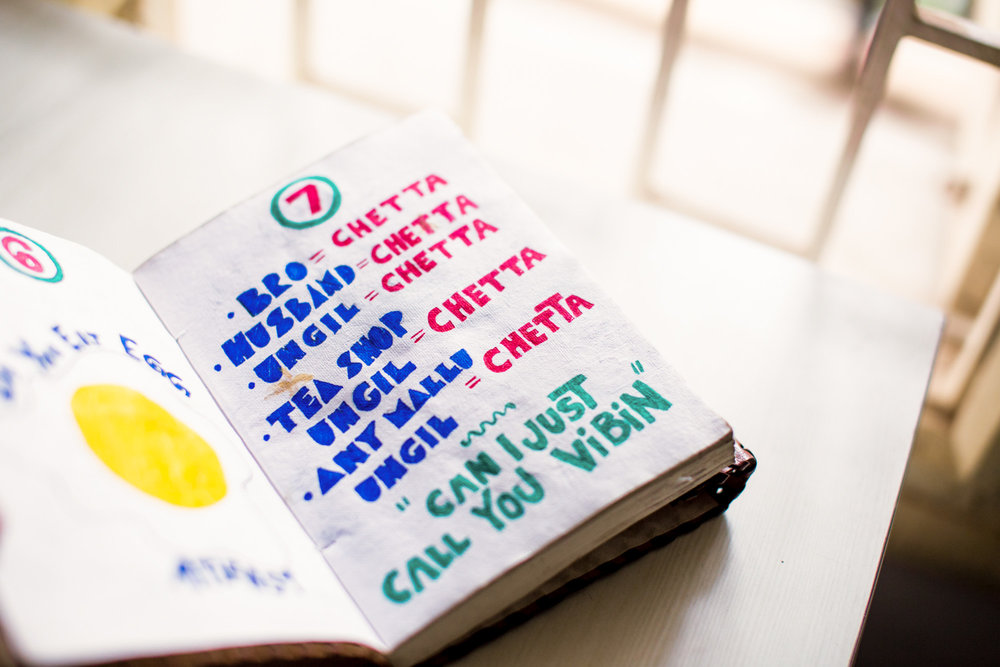 6
You EAT EGG
7
• BRO = CHETTA
• HUSBAND = CHETTA
• UNGIL = CHETTA
• TEA SHOP
UNGIL = CHETTA
• ANY MALLU
UNGIL = CHETTA
"CAN I JUST
CALL YOU VIBIN"